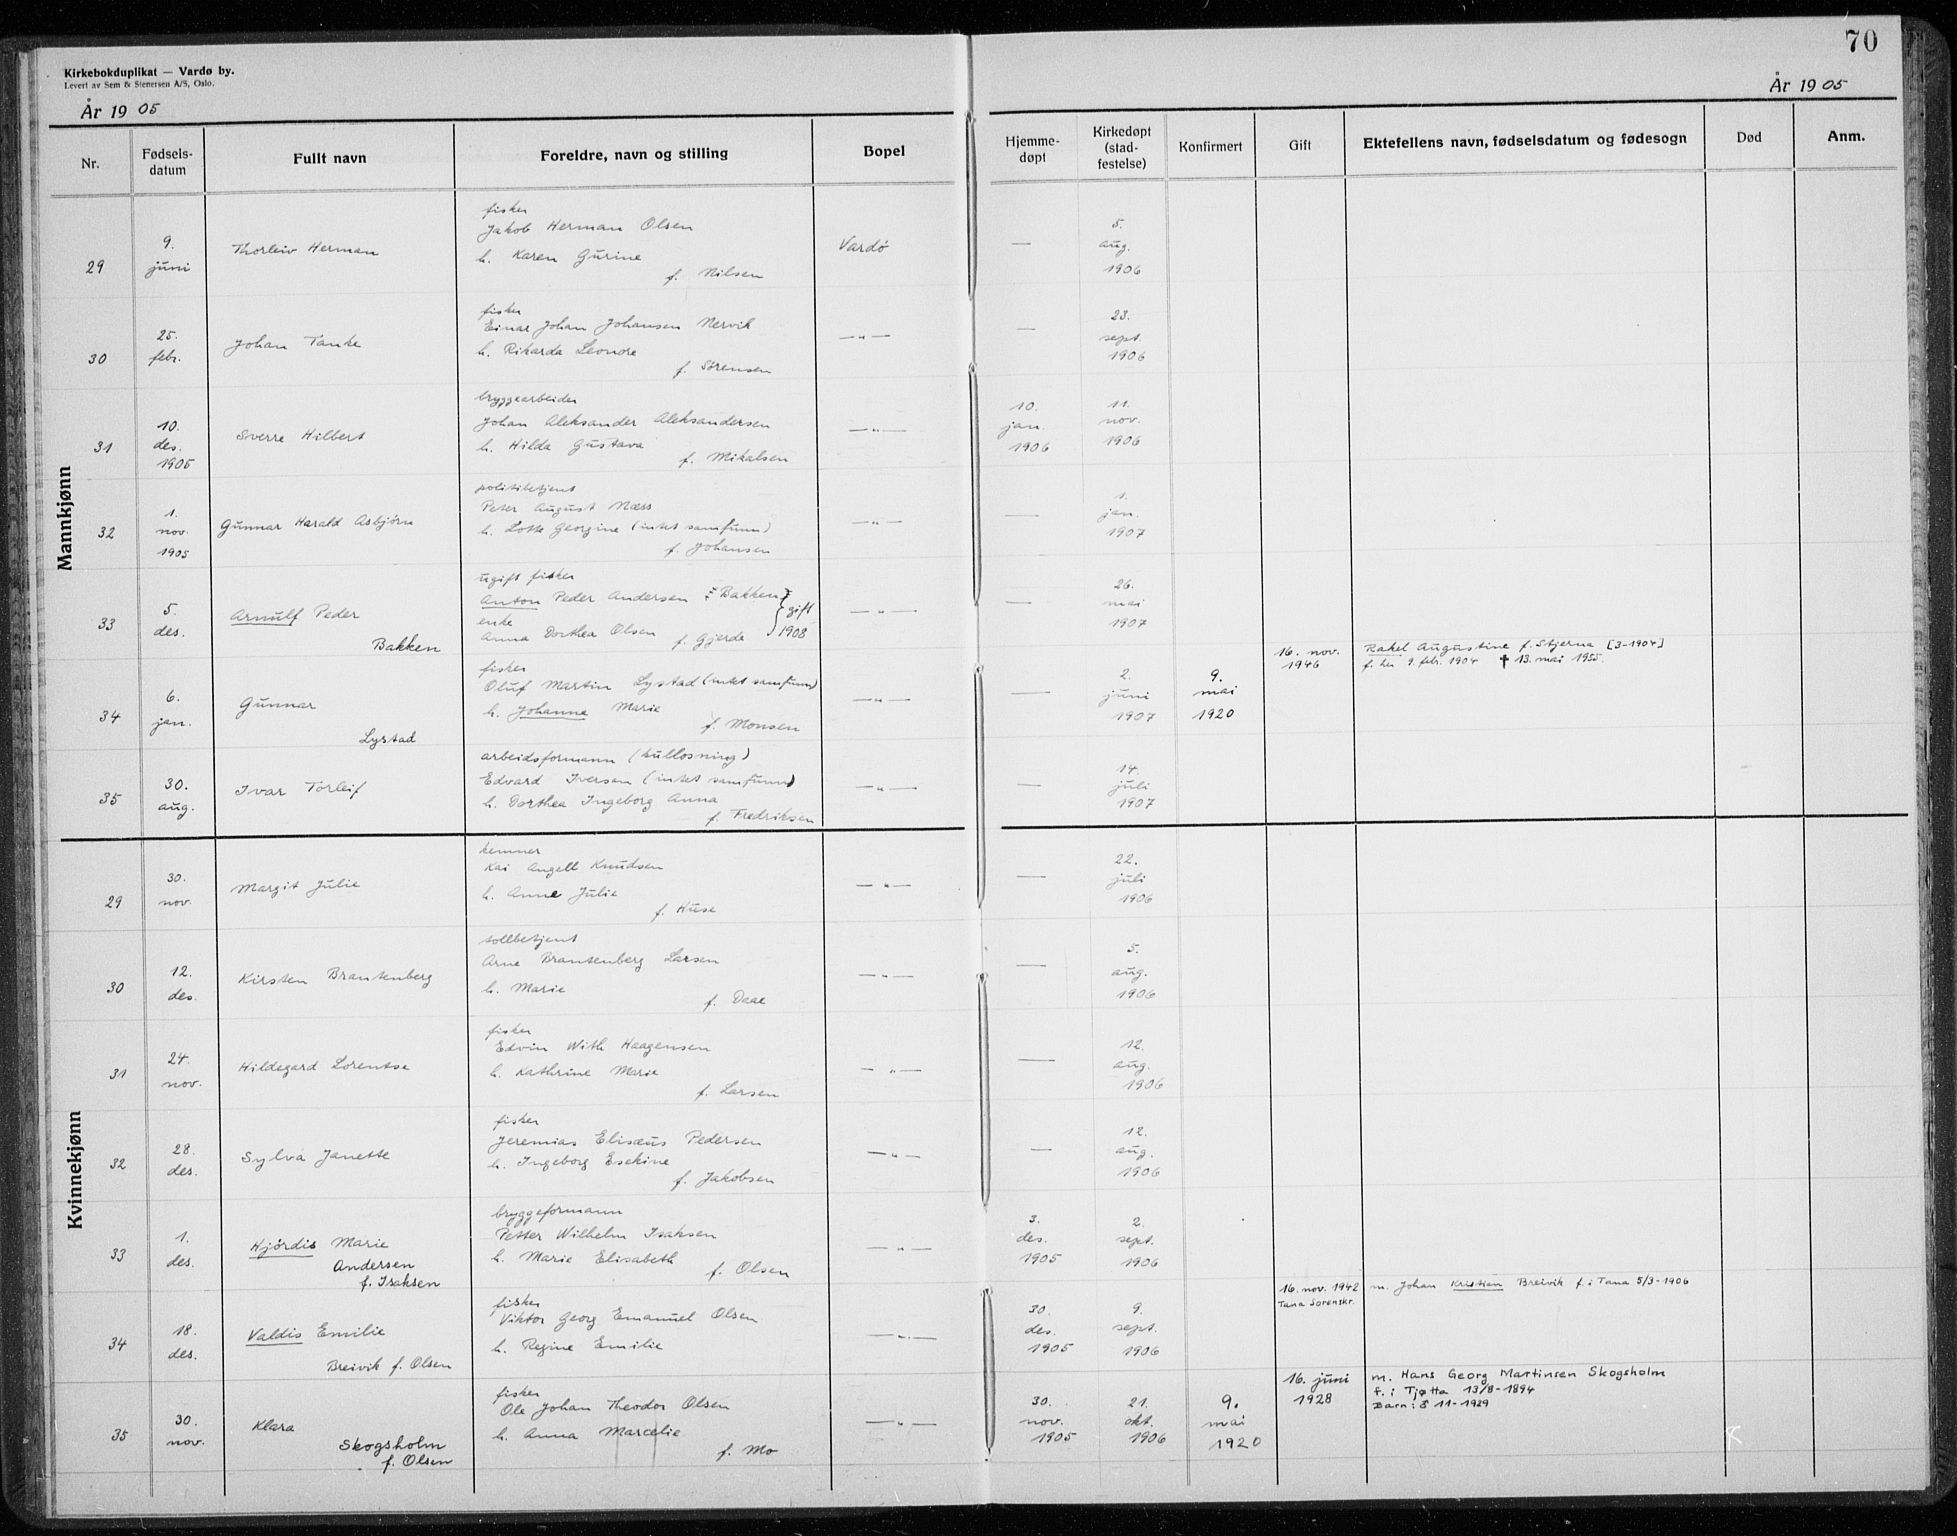 70
Kirkebokduplikat — Vardø by.
Levert av Sem & Stenersen A/S, Oslo.
År 1905
År 1905
Nr.
Fødsels-
datum
Fullt navn
Foreldre, navn og stilling
Bopel
Hjemme-
døpt
Kirkedøpt
(stad-
festelse)
Konfirmert
Gift
Ektefellens navn, fødselsdatum og fødesogn
Død
Anm.
Mannkjønn
29
9.
juni
Thorleiv Herman
fisker
Jakob Herman Olsen
h. Karen Gurine
f. Nilsen
Vardø
—
5.
aug.
1906
30
25.
febr.
Johan Tanke
fisker
Einar Johan Johansen Nervik
h. Rikarda Leonore
f. Sørensen
—„—
—
23.
sept.
1906
31
10.
des.
1905
Sverre Hilbert
bryggearbeider
Johan Aleksander Aleksandersen
h. Hilda Gustava
f. Mikalsen
—„—
10.
jan.
1906
11.
nov.
1906
32
1.
nov.
1905
Gunnar Harald Asbjørn
politibetjent
Peter August Næss
h. Lotte Georgine (intet samfunn)
f. Johansen
—„—
—
1.
jan.
1907
33
5.
des.
Arnulf Peder
Bakken
ugift fisker
Anton Peder Andersen Bakken
enke
Anna Dorthea Olsen f. Gjerde
gift
1908
—„—
—
26.
mai
1907
16. nov.
1946
Rakel Augustine f. Stjerna [3-1904]
f. her 9. febr. 1904 ✝ 13. mai 1955.
34
6.
jan.
Gunnar
Lystad
fisker
Oluf Martin Lystad (intet samfunn)
h. Johanne Marie
f. Monsen
—„—
—
2.
juni
1907
9.
mai
1920
35
30.
aug.
Ivar Torleif
arbeidsformann (kullosning)
Edvard Iversen (intet samfunn)
h. Dorthea Ingeborg Anna
f. Fredriksen
—„—
—
14.
juli
1907
Kvinnekjønn
29
30.
nov.
Margit Julie
kemner
Kai Angell Knudsen
h. Anne Julie
f. Huse
—„—
—
22.
juli
1906
30
12.
des.
Kirsten Brantenberg
tollbetjent
Arne Brantenberg Larsen
h. Marie
f. Daae
—„—
—
5.
aug.
1906
31
24.
nov.
Hildegard Lorentse
fisker
Edvin With Haagensen
h. Kathrine Marie
f. Larsen
—„—
—
12.
aug.
1906
32
28.
des.
Sylva Janette
fisker
Jeremias Elisæus Pedersen
h. Ingeborg Esekine
f. Jakobsen
—„—
—
12.
aug.
1906
33
1.
des.
Hjördis Marie
Andersen
f. Isaksen
bryggeformann
Petter Wilhelm Isaksen
h. Marie Elisabeth
f. Olsen
—„—
3.
des.
1905
2.
sept.
1906
34
18.
des.
Valdis Emilie
Breivik f. Olsen
fisker
Viktor Georg Emanuel Olsen
h. Regine Emilie
—„—
30.
des.
1905
9.
sept.
1906
16. nov. 1942
Tana Sorenskr.
m. Johan Kristian Breivik f. i Tana 5/3-1906
35
30.
nov.
Klara
Skogsholm
f. Olsen
fisker
Ole Johan Theodor Olsen
h. Anna Marcelie
f. Mo
—„—
30.
nov.
1905
21.
okt.
1906
9.
mai
1920
16. juni
1928
m. Hans Georg Martinsen Skogsholm
f. i Tjøtta 13/8-1894
Barn: 8 11-1929